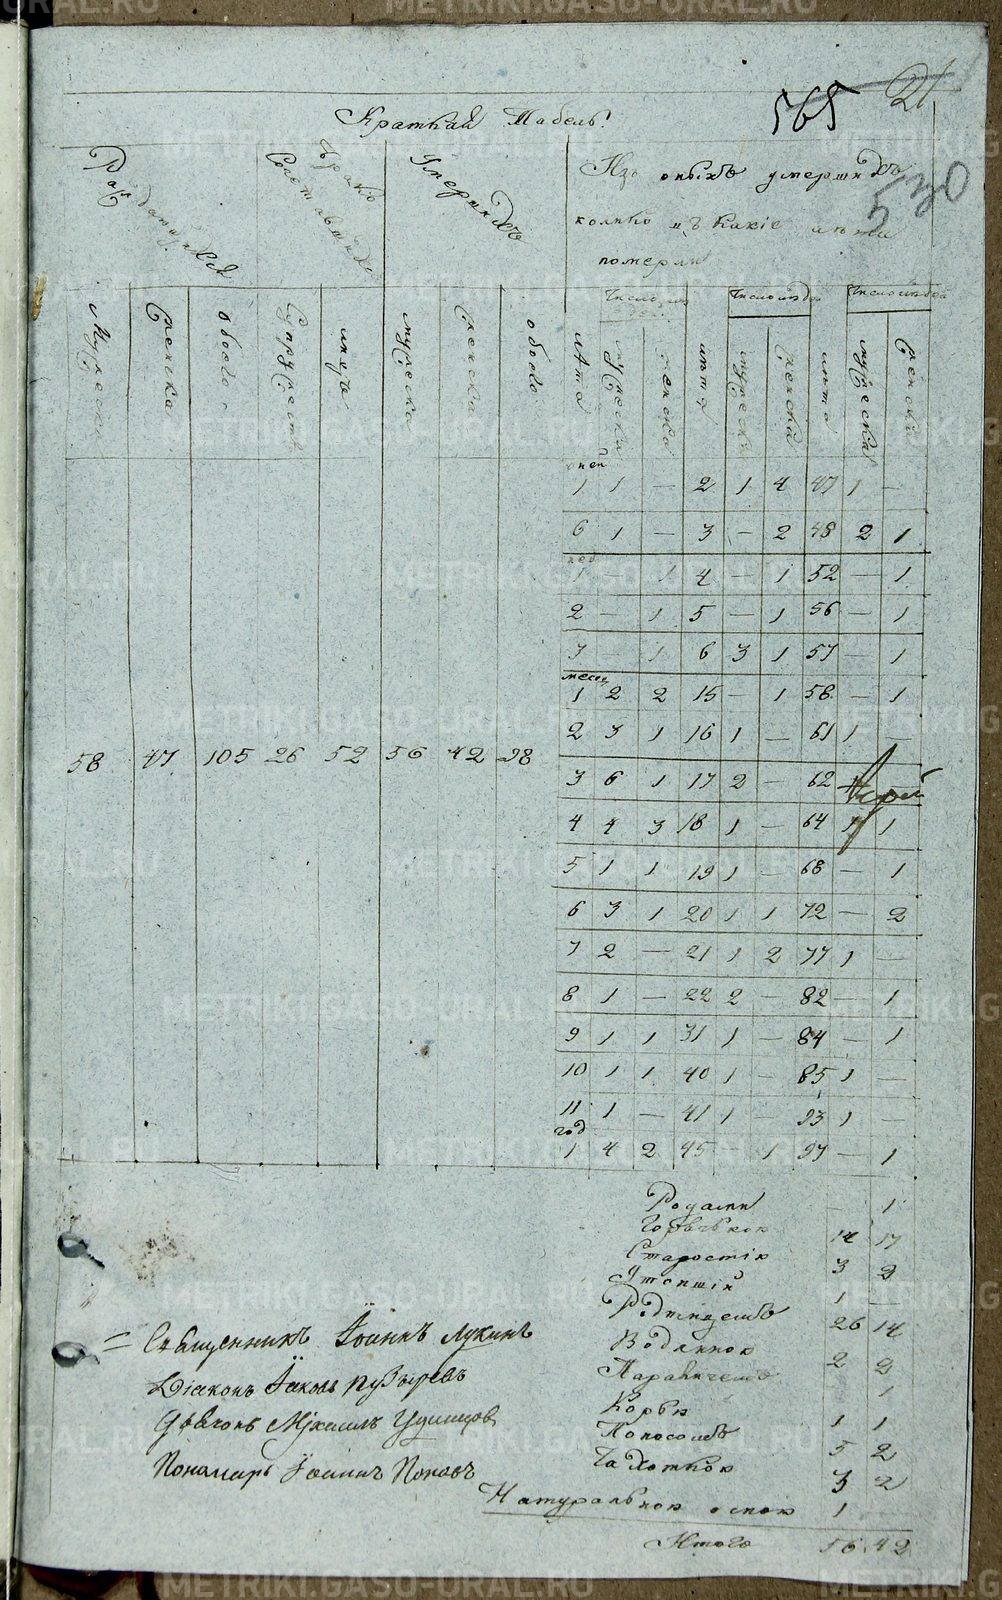 565
21
530
Краткая Табель.
Рождающихся
Браковъ
Сочетавшихся
Умершихъ
Изъ оныхъ умершихъ
колико и въ какіе лѣта
померли
Мужеска
Женска
обоего
Супружествъ
лицъ
мужеска
женска
обоего
лѣта
мужеска
женска
лѣта
мужеска
женска
лѣта
мужеска
женска
дней
1 1 — 2 1 4 47 1 —
6 1 — 3 — 2 48 2 1
нед
1 — 1 4 — 1 52 — 1
2 — 1 5 — 1 56 — 1
3 — 1 6 3 1 57 — 1
месяц
1 2 2 15 — 1 58 — 1
2 3 1 16 1 — 61 1 —
58 47 105 26 52 56 42 98
3 6 1 17 2 — 62
4 4 3 18 1 — 64 1 1
5 1 1 19 1 — 68 — 1
6 3 1 20 1 1 72 — 2
7 2 — 21 1 2 77 1 —
8 1 — 22 2 — 82 — 1
9 1 1 31 1 — 84 — 1
10 1 1 40 1 — 85 1 —
11 1 — 41 1 — 93 1 —
год
1 4 2 45 — 1 97 — 1
Родами 1
Горячкою 14 17
Старостію 3 2
Утопшій 1 —
Родимцемъ 26 14
Водяною 2 2
Параличемъ 1
Корью 1 1
Поносомъ 5 2
Чахоткою 3 2
Натуральною оспою 1 —
Итого 56 42
Священникъ Іоаннъ Лукинъ
Діаконъ Іаковъ Пузыревъ
Дьячокъ Михаилъ Удинцов
Пономарь Іоаннъ Поповъ
METRIKI.GASO-URAL.RU